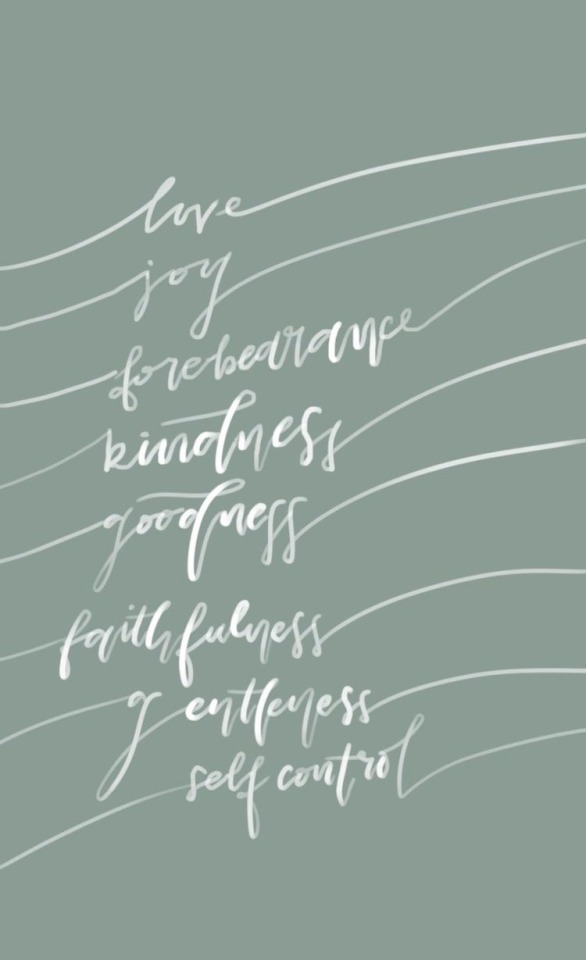 love
joy
forebearance
kindness
goodness
faithfulness
gentleness
self control